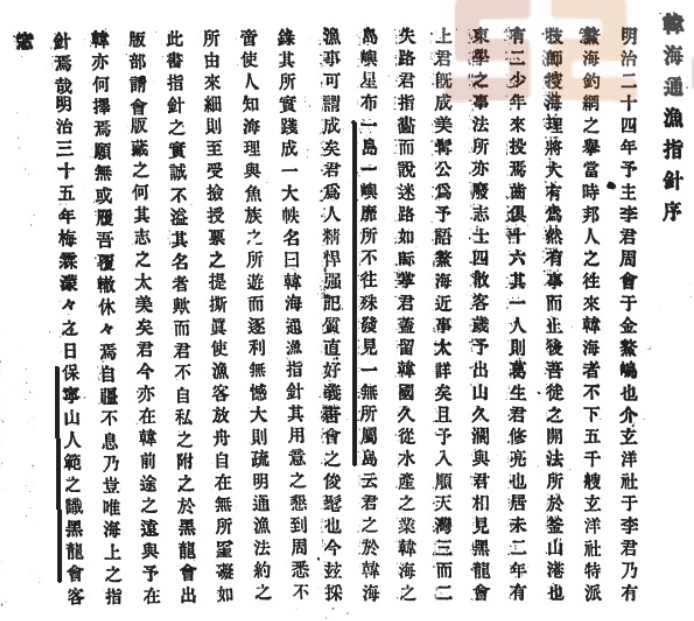 韓海通漁指針序
明治二十四年予主李君周會于金鰲嶋也介玄洋社于李君乃有
鰲海釣網之擧當時邦人之往來韓海者不下五千艘玄洋社特派
技師搜海理將大有爲然有事而止後吾徒之開法所於釜山港也
有二少年來投焉齒俱十六其一人則葛生君修亮也居未二年有
東學之事法所亦廢志士四散客歲予出山久濶與君相見黑龍會
上君既成美髯公爲予語鰲海近事太詳矣且予入順天灣三而二
失路君指畵而說迷路如眎掌君蓋留韓國久從水產之業韓海之
島嶼星布一島一嶼靡所不往殊發見一無所屬島云君之於韓海
漁事可謂成矣君爲人精悍强記質直好義書會之俊髦也今玆採
錄其所實踐成一大帙名曰韓海通漁指針其用意之懇到周悉不
啻使人知海理與魚族之所遊而逐利無憾大則疏明通漁法約之
所由來細則至受撿授票之提撕眞使漁客放舟自在無所罣礙如
此書指針之實誠不溢其名者歟而君不自私之附之於黑龍會出
版部請會版藏之何其志之太美矣君今亦在韓前途之遠與予在
韓亦何擇焉願無或履吾覆轍休々焉自疆不息乃豈唯海上之指
針焉哉明治三十五年梅霖濛々之日保寧山人範之識黑龍會客
窓